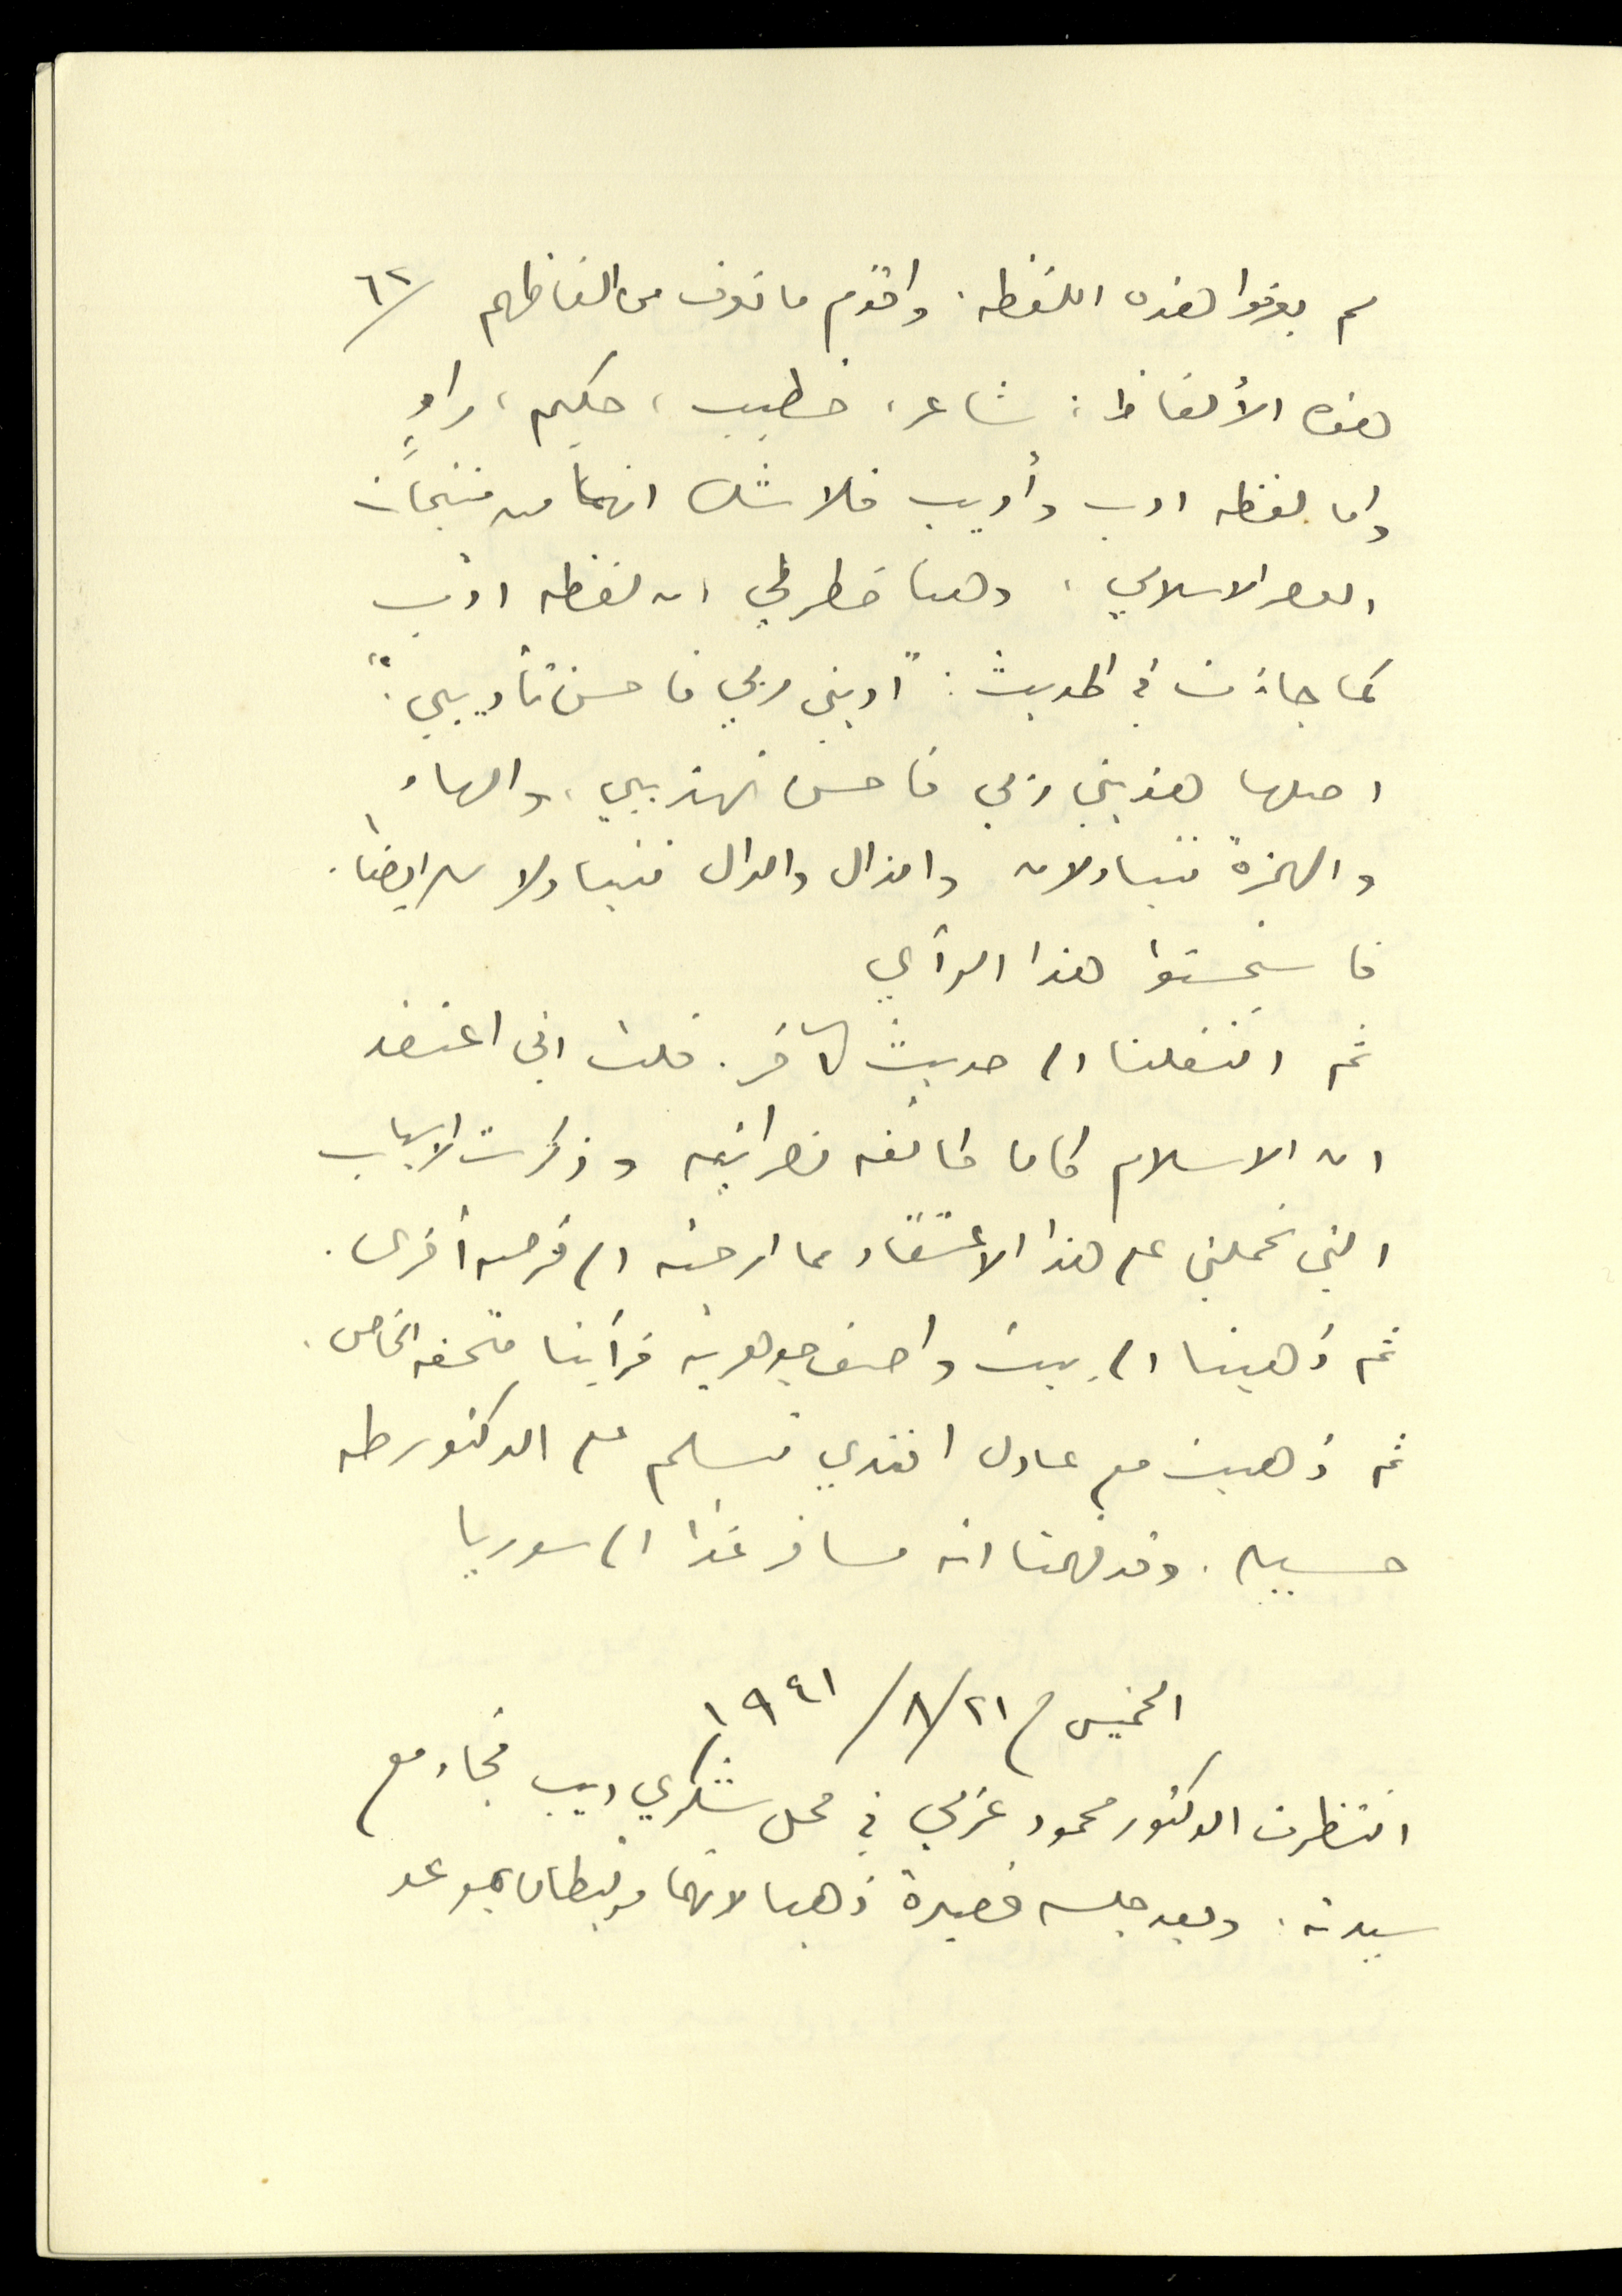 لم يعرفوا هذه اللفظه. واقدم ما نعرف من الفاظهم ٦٢/
هذه الألفاظ: شاعر، خطيب، حكيم، راوٍ
واما لفظه ادب وأديب فلا شك انهما من منتجات
العصر الاسلامي، وهنا خطر لي ان لفظه ادّب
كما جاءت في الحديث: "ادبني ربي فاحسن تأديبي".
اصلها هذبني ربي فاحسن تهذيبي، والهاء
والهمزة تتبادلان والذال والدال تتبادلان ايضاً.
فاستحسنوا هذا الرأي
ثم انتقلنا الى حديث آخر. قلت اني اعتقد
ان الاسلام كان طائفه نصرانيه وذكرت الاسباب
التي تحملني على هذا الاعتقاد مما ارجئه الى فرصه أخرى.
ثم ذهبنا الى بيت واصف جوهريه فرأينا متحفه الخاص.
ثم ذهبت مع عادل افندي نسلم على الدكتور طه
حسين. وقد فهمنا انه مسافر غداً الى سوريا
الخميس ٢١/٨/١٩٤١
انتظرت الدكتور محمود عزمي في محل شكري ديب فجاء مع
سيدته. وبعد جلسه قصيرة ذهبا لانهما مرتبطان بموعد